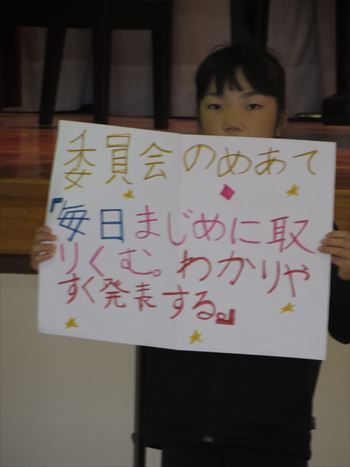 委員会のめあて
『毎日まじめに取
りくむ。わかりや
すく発表する。』